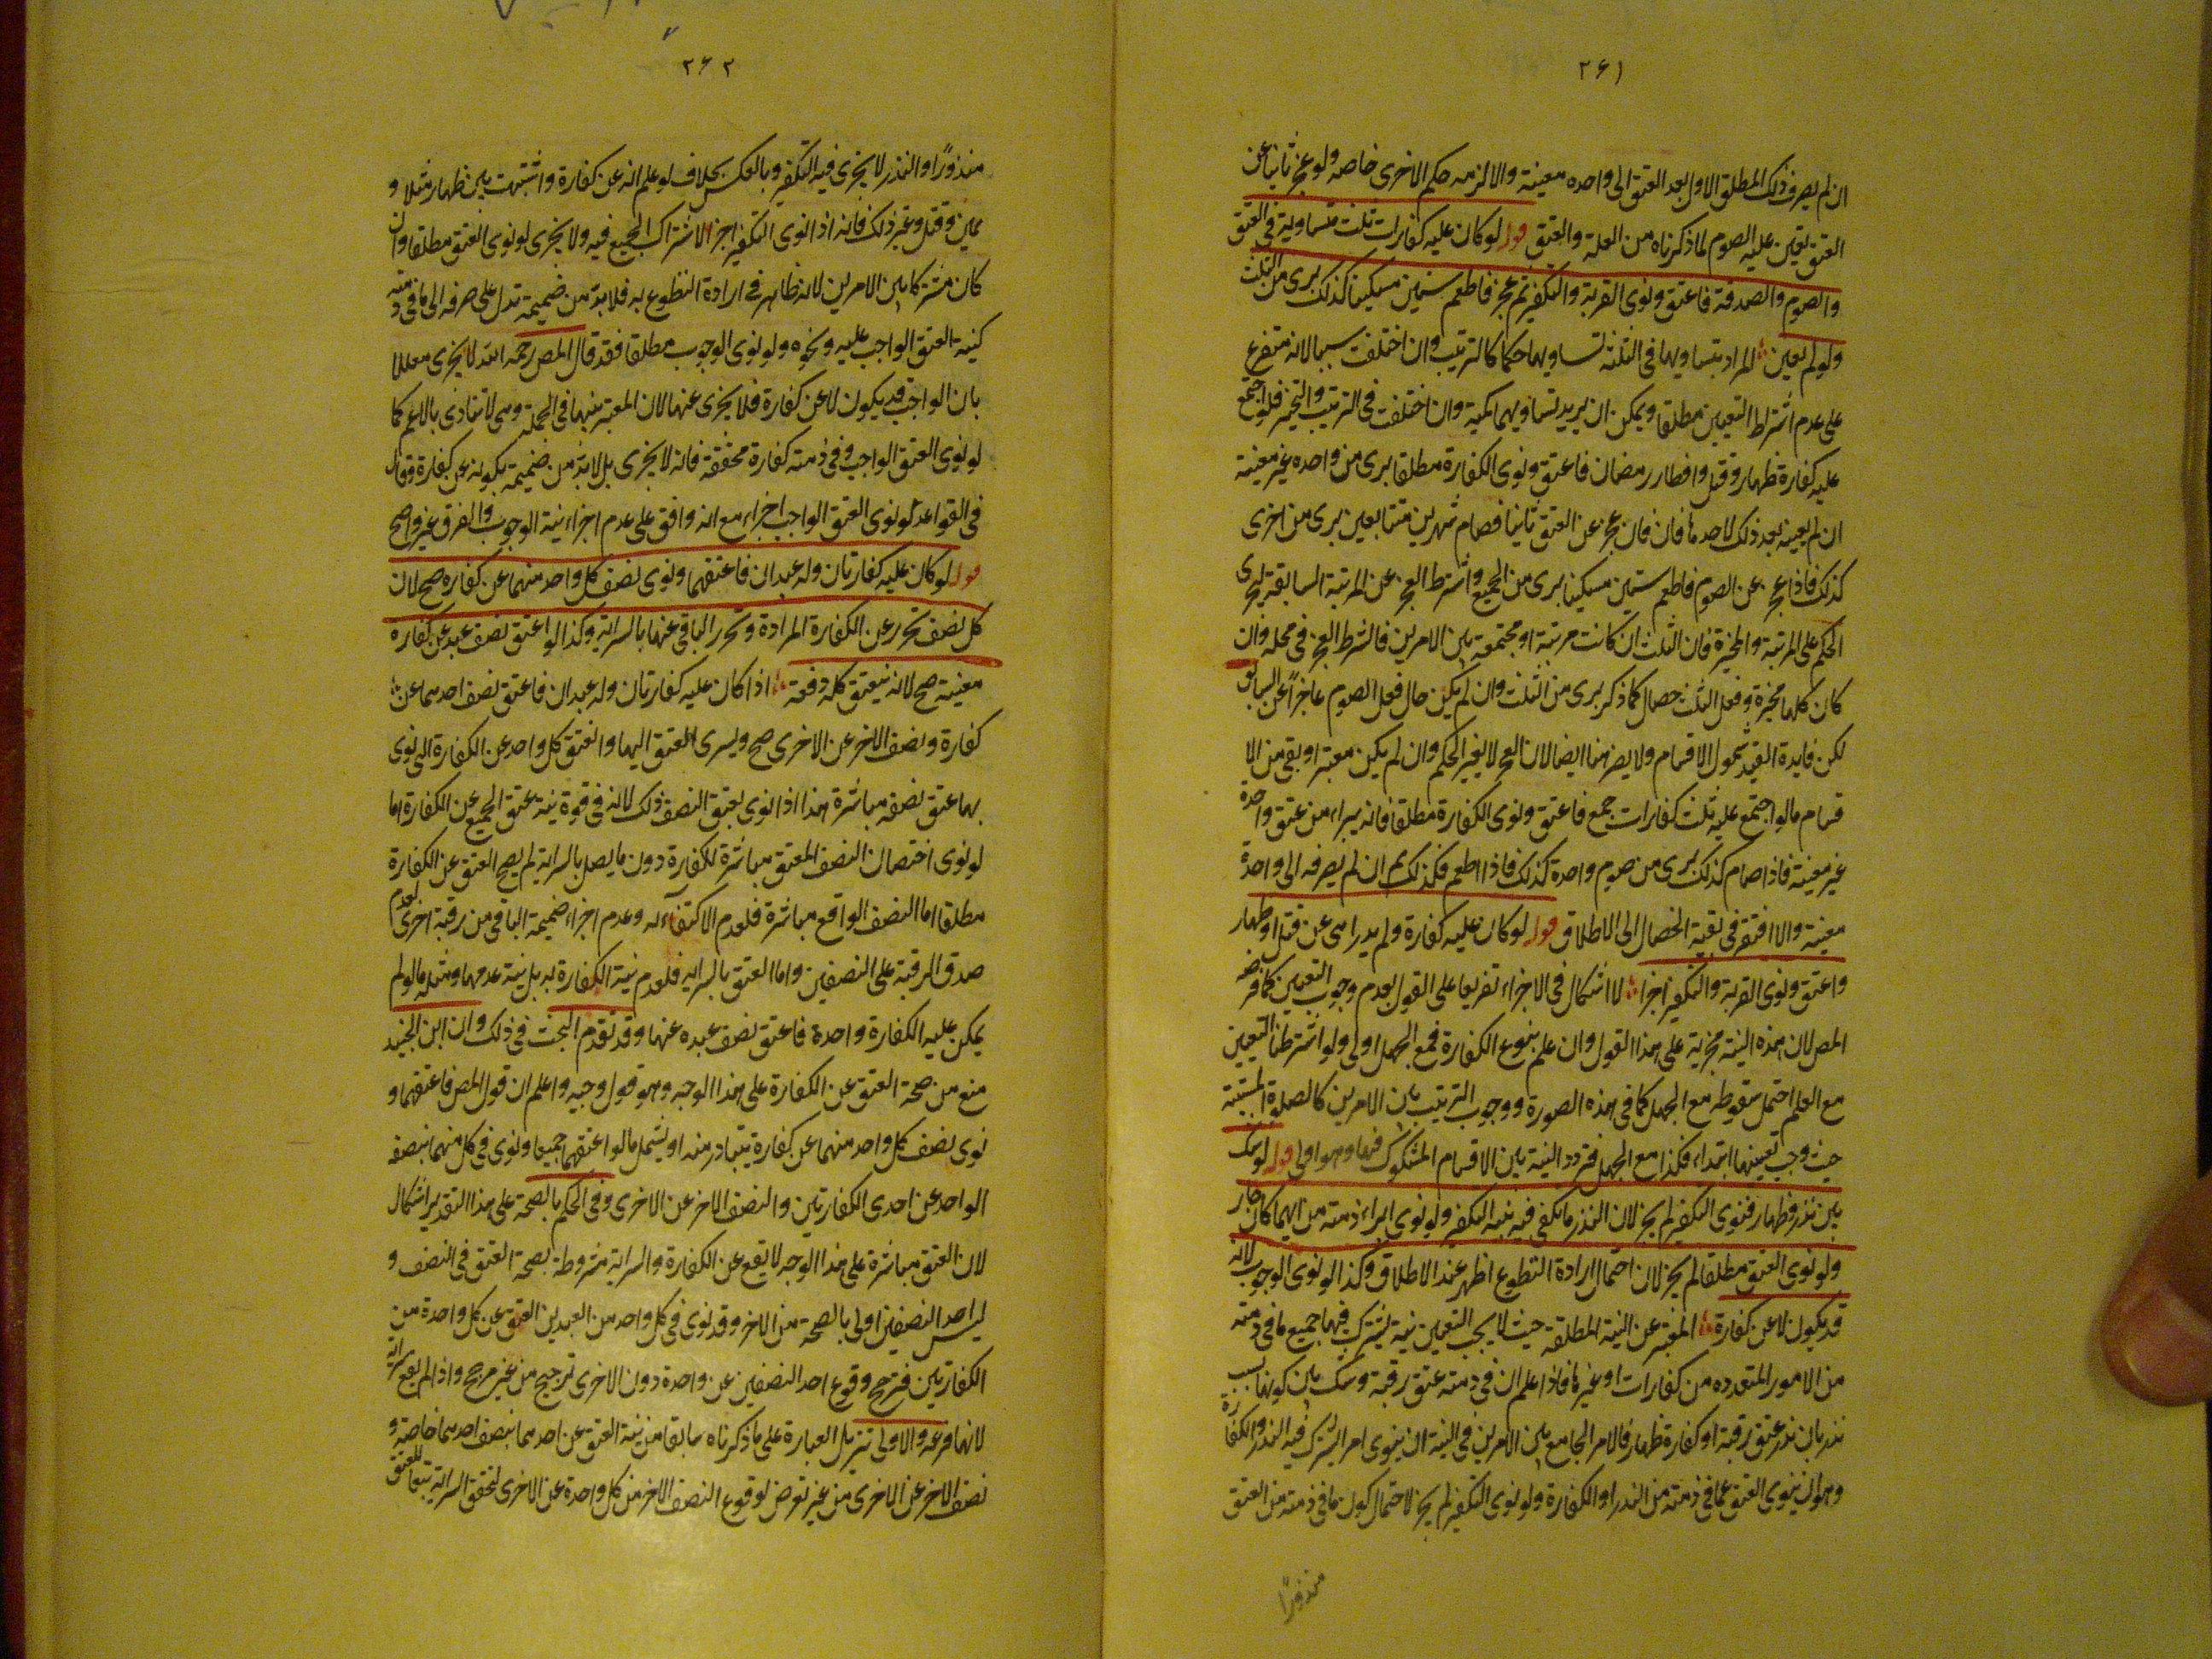 ۲۶۱
ان لم يصرف ذلك المطلق الاول بعد العتق الى واحده معينة والا لزمه حكم الاخرى خاصه ولو عجز ثانيا عن
العتق تعين عليه الصوم لما ذكرناه من العلة والعتق قوله لو كان عليه كفارات ثلث متساوية في العتق
والصوم والصدقة فاعتق ونوى القربة والتكفير ثم عجز فاطعم ستين مسكينا كذلك برى من الثلث
ولو لم يعين المراد بتساويها فى الثلثة تساويها حكما كالترتيب وان اختلفت سببا لانه متفرع
على عدم اشتراط التعيين مطلقا ويمكن ان يريد تساويهما كمية وان اختلفت فى الترتيب والتخيير فلو اجتمع
عليه كفارة ظهار وقتل وافطار رمضان فاعتق ونوى الكفارة مطلقا برى من واحده غير معينة
ان لم يعينه بعد ذلك لاحدها فان فان عجز عن العتق ثانيا فصام شهرين متتابعين برى من اخرى
كذلك فاذا عجز عن الصوم فاطعم ستين مسكينا برى من الجميع واشترط العجز عن المرتبة السابقة ليجرى
الحكم على المرتبة والمخيرة فان الثلث ان كانت مرتبة او مجتمعة بين الامرين فالشرط العجز فى محله وان
كان كلها مخيرة وفعل الثلث خصال كما ذكر برى من الثلث وان لم يكن حال فعل الصوم عاجزًا عن السابق
لكن فايدة القيد شمول الاقسام ولا يضر هنا ايضا لان العجز لا يغير الحكم وان لم يكن معتبرا وبقى من الا
قسام ما لو اجتمع عليه ثلث كفارات جمع فاعتق ونوى الكفارة مطلقا فانه يبراء من عتق واحدة
غير معينة فاذا صام كذلك برى من صوم واحدة كذلك فاذا اطعم فكذلك ثم ان لم يصرفه الى واحدة
معينة والا افتقر فى بقية الخصال الى الاطلاق قوله لو كان عليه كفارة ولم يدر اهى عن قتل او ظهار
واعتق ونوى القربة والتكفير اجزا لا اشكال فى الاجزاء تفريعا على القول بعدم وجوب التعيين كما فرضه
المصر لان هذه النية مجزية على هذا القول وان علم بنوع الكفارة فمع الجهل اولى ولو اشترطنا التعيين
مع العلم احتمل سقوطه مع الجهل كما فى هذه الصورة ووجوب الترتيب بين الامرين كالصلوة المشتبة
حيث وجب تعيينها ابتداء فكذا مع الجهل فتردد النية بين الاقسام المشكوك فيها وهو اولى قوله لو شك
بين نذر وظهار فنوى التكفير لم يجز لان النذر ما يكفى فيه نية التكفير ولو نوى ابراء ذمته من ايهما كان جاز
ولو نوى العتق مطلقا لم يجز لان احتمال ارادة التطوع اظهر عند الاطلاق وكذا لو نوى الوجوب لانه
قد يكون لا عن كفارة المعتبر عن النية المطلقة حيث لا يجب التعيين نية يشترك فيها جميع ما فى ذمته
من الامور المتعدده من كفارات او غيرها فاذا علم ان فى ذمته عتق رقبة وشك بين كونها بسبب
نذر بان نذر عتق رقبة او كفارة ظهار فالامر الجامع بين الامرين فى النية ان ينوى امرا يشترك فيه النذر والكفارة
وهو ان ينوى العتق عما فى ذمته من النذر او الكفارة ولو نوى التكفير لم يجز لاحتمال كون ما فى ذمته من العتق
منذورًا
۲۶۲
منذورًا والنذر لا يجزى فيه التكفير وبالعكس بخلاف لو علم انه عن كفارة واشتبهت بين ظهار مثلا و
يمين وقتل وغير ذلك فانه اذا نوى التكفير اجزا لاشتراك الجميع فيه ولا يجزى لو نوى العتق مطلقا وان
كان مشتركا بين الامرين لانه ظاهر فى ارادة التطوع به فلا بد من ضميمة تدل على صرفه الى ما فى ذمته
كنية العتق الواجب عليه ونحوه ولو نوى الوجوب مطلقا فقد قال المص رحمه الله لا يجزى معللا
بان الواجب قد يكون لا عن كفارة فلا يجزى عنها لان المعتبر نيتها فى الجملة وهى لا تتادى بالاعم كما
لو نوى العتق الواجب وفى ذمته كفارة محققة فانه لا يجزى بل لا بد من ضميمة بكونه عن كفارة وقال
فى القواعد لو نوى العتق الواجب اجزاء مع انه وافق على عدم اجزاء نية الوجوب والفرق غير واضح
قوله لو كان عليه كفارتان وله عبدان فاعتقهما ونوى نصف كل واحد منهما عن كفارة صح لان
كل نصف تحرر عن الكفارة المرادة وتحرر الباقى عنها بالسراية وكذا لو اعتق نصف عبد عن كفارة
معينة صح لانه ينعتق كله دفعة اذا كان عليه كفارتان وله عبدان فاعتق نصف احدهما عن
كفارة ونصف الاخر عن الاخرى صح ويسرى العتق اليهما وانعتق كل واحد عن الكفارة التى نوى
بها عتق نصفه مباشرة هذا اذا نوى بعتق النصف ذلك لانه فى قوة نية عتق الجميع عن الكفارة اما
لو نوى اختصاص النصف المعتق مباشرة للكفارة دون ما يصل بالسراية لم يصح العتق عن الكفارة
مطلقا اما النصف الواقع مباشرة فلعدم الاكتفاء به وعدم اجزاء ضميمة الباقى من رقبة اخرى لعدم
صدق الرقبة على النصفين واما العتق بالسراية فلعدم نية الكفارة به بل نية عدمها ومثله ما لو لم
يمكن عليه الكفارة واحدة فاعتق نصف عبده عنها وقد تقدم البحث فى ذلك وان ابن الجنيد
منع من صحة العتق عن الكفارة على هذا الوجه وهو قول وجيه واعلم ان قول المصر فاعتقهما و
نوى نصف كل واحد منهما عن كفارة يتبادر منه او يشمل ما لو اعتقهما جميعا ونوى فى كل منهما بنصفه
الواحد عن احدى الكفارتين والنصف الاخر عن الاخرى وفى الحكم بالصحة على هذا التقدير اشكال
لان العتق مباشرة على هذا الوجه لا يقع عن الكفارة والسراية مشروطة بصحة العتق فى النصف و
ليس احد النصفين اولى بالصحة من الاخر وقد نوى فى كل واحد من العبدين العتق عن كل واحدة من
الكفارتين فترجح وقوع احد النصفين عن واحدة دون الاخرى ترجيح من غير مرجح واذا لم يقع سراية
لانها فرعه والاولى تنزيل العبارة على ما ذكرناه سابقا من نية العتق عن احدهما بنصف احدهما خاصة و
نصف الاخر عن الاخرى من غير تعرض لوقوع النصف الاخر من كل واحدة عن الاخرى لتحقق السراية تبعا للعتق